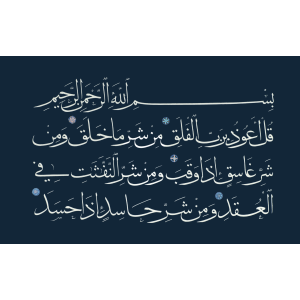 بِسْمِ اللَّهِ الرَّحْمَنِ الرَّحِيمِ
قُلْ أَعُوذُ بِرَبِّ الْفَلَقِ مِن شَرِّ مَا خَلَقَ وَمِن
شَرِّ غَاسِقٍ إِذَا وَقَبَ وَمِن شَرِّ النَّفَّثَتِ فِي
الْعُقَدِ وَمِن شَرِّ حَاسِدٍ إِذَا حَسَدَ